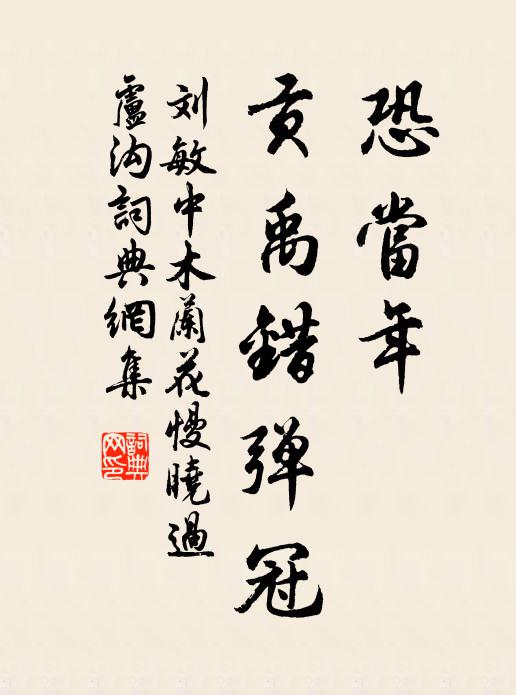 恐當年
贡禹錯弹冠
刘敏中木蘭花慢曉過
盧沟詞典網集
詞典網印